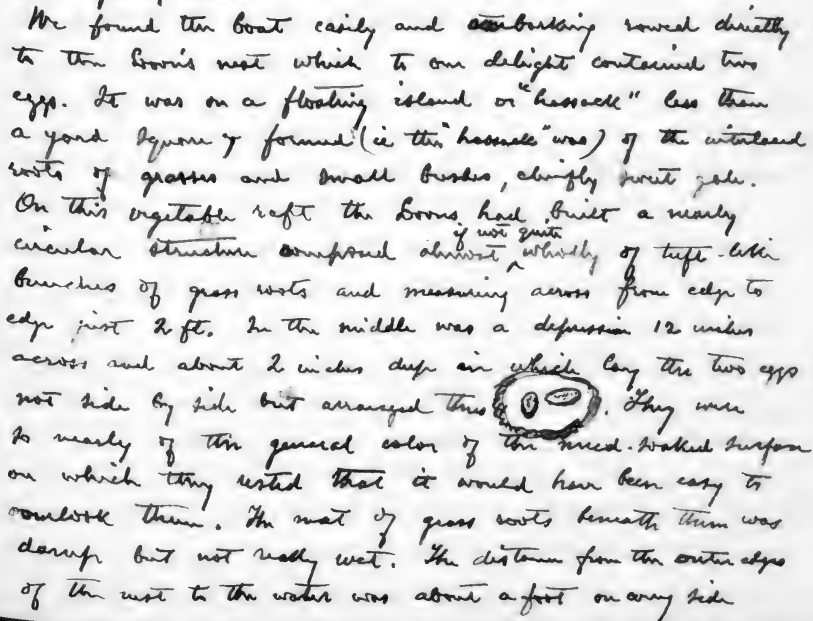 We found the boat easily and embarking rowed directly
to the Loon's nest which to our delight contained two
eggs. It was on a floating island or "hassock" less than
a yard square & formed (ie the "hassock" was) of the interlaced
roots of grasses and small bushes, chiefly sweet gale.
On this vegetable raft the Loons had built a nearly
circular structure composed almost if not quite wholly of tuft-like
bunches of grass roots and measuring across from edge to
edge just 2 ft. In the middle was a depression 12 inches
across and about 2 inches deep in which lay the two eggs
not side by side but arranged thus . They were
so nearly of the general color of the mud-soaked surface
on which they rested that it would have been easy to
overlook them. The mat of grass roots beneath them was
damp but not really wet. The distance from the outer edges
of the nest to the water was about a foot on every side